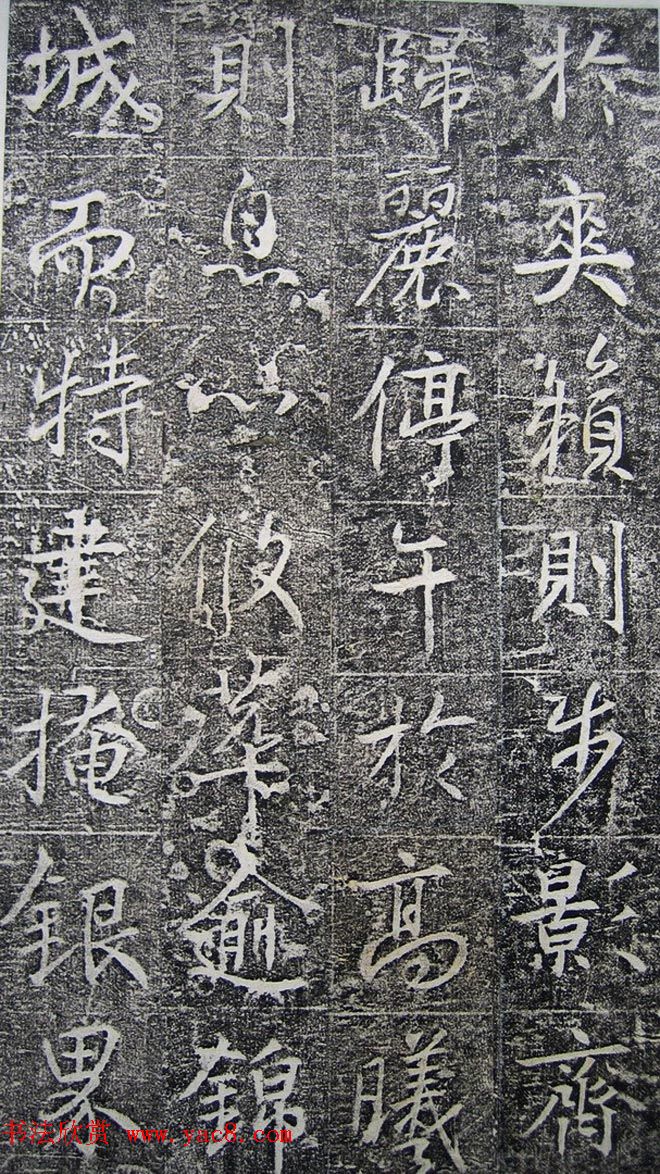 於爽籟則步影齊
歸麗停午於高曦
則息心攸萃逾錦
城而特建掩銀界
书法欣赏 www.yac8.com